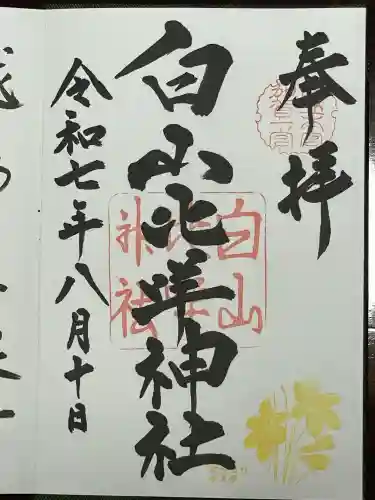 奉拝
白山比咩神社
令和七年八月十日
白山
比咩
神社